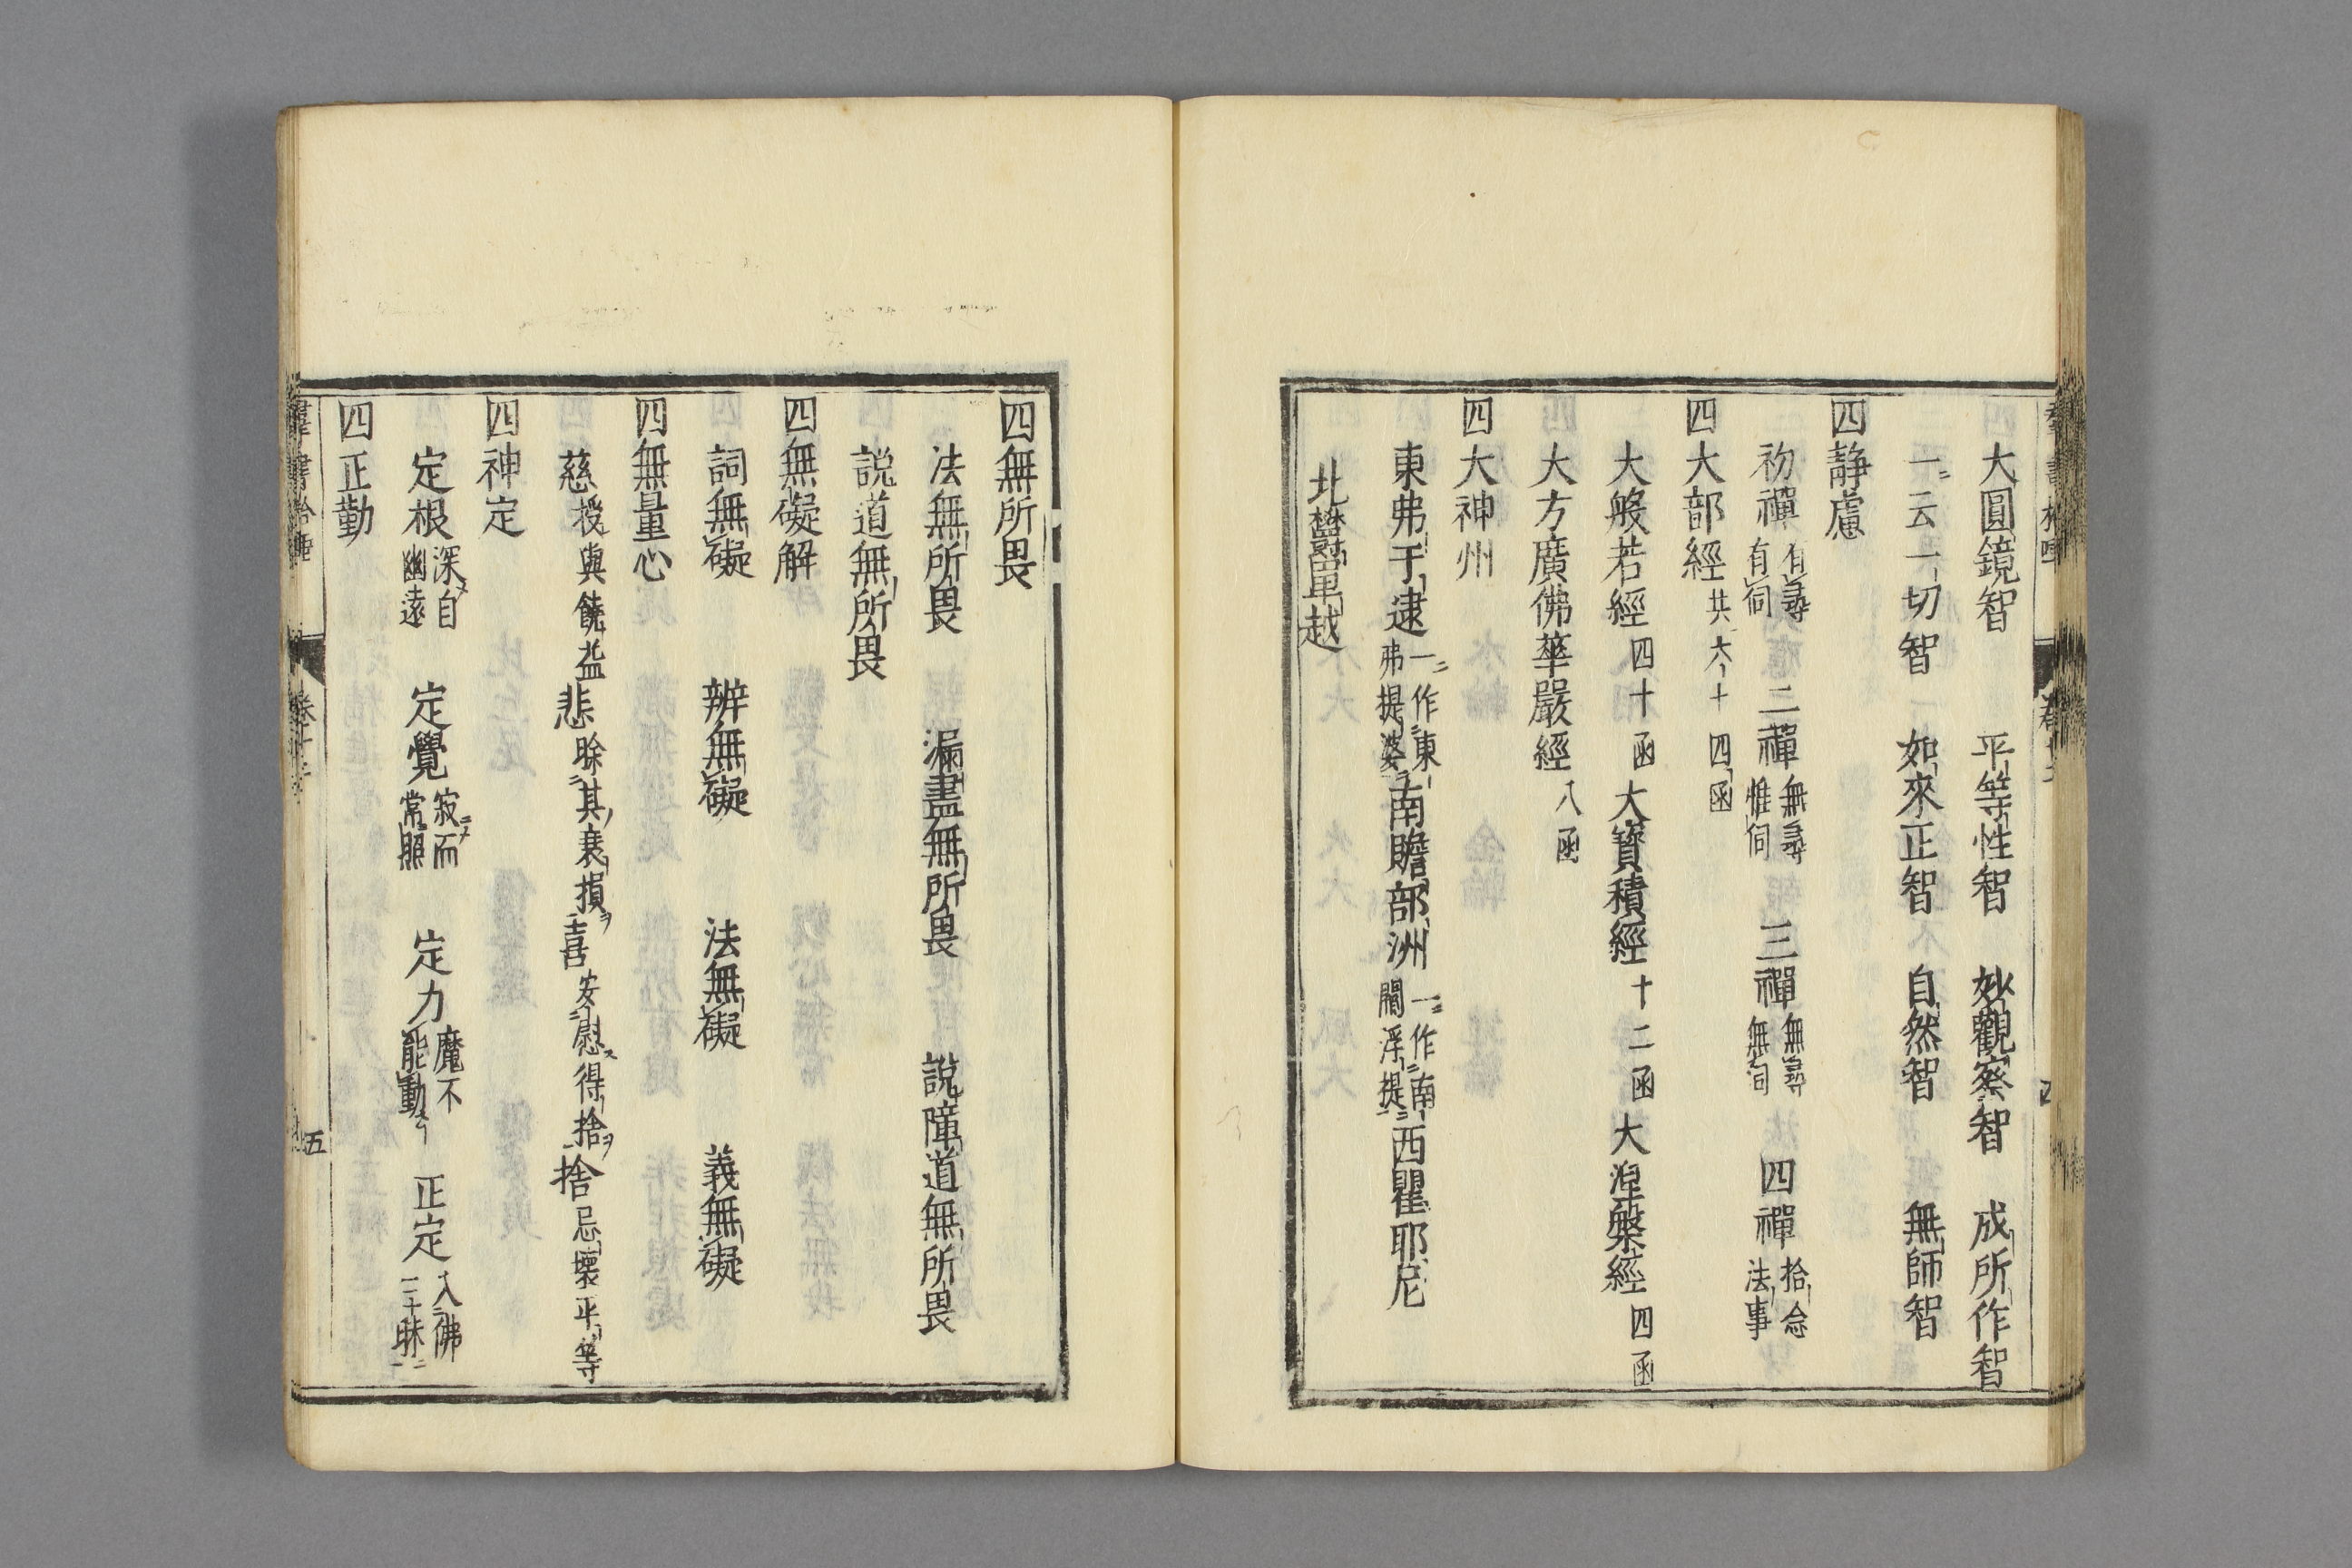 大圓鏡智　平等性智　妙觀察智　成所作智
一云一切智　如來正智　自然智　無師智
四靜慮
初禪有尋有伺　二禪無尋惟伺　三禪無尋無伺　四禪捨念法事
四大部經共六十四函
大般若經四十函大寶積經十二函大涅槃經四函
大方廣佛華嚴經八函
四大神州
東弗于逮一作東弗提婆南贍部洲一作南閻浮提西瞿耶尼
北欝單越
四無所畏
法無所畏　漏盡無所畏　說障道無所畏
說道無所畏
四無礙解
詞無礙　辨無礙　法無礙　義無礙
四無量心
慈授與饒益悲除其衰損喜安慰得捨捨忌壞平等
四神定
定根深自幽遠　定覺寂而常照　定力魔不能動　正定入佛三昧
四正勤
羣書拾唾
五